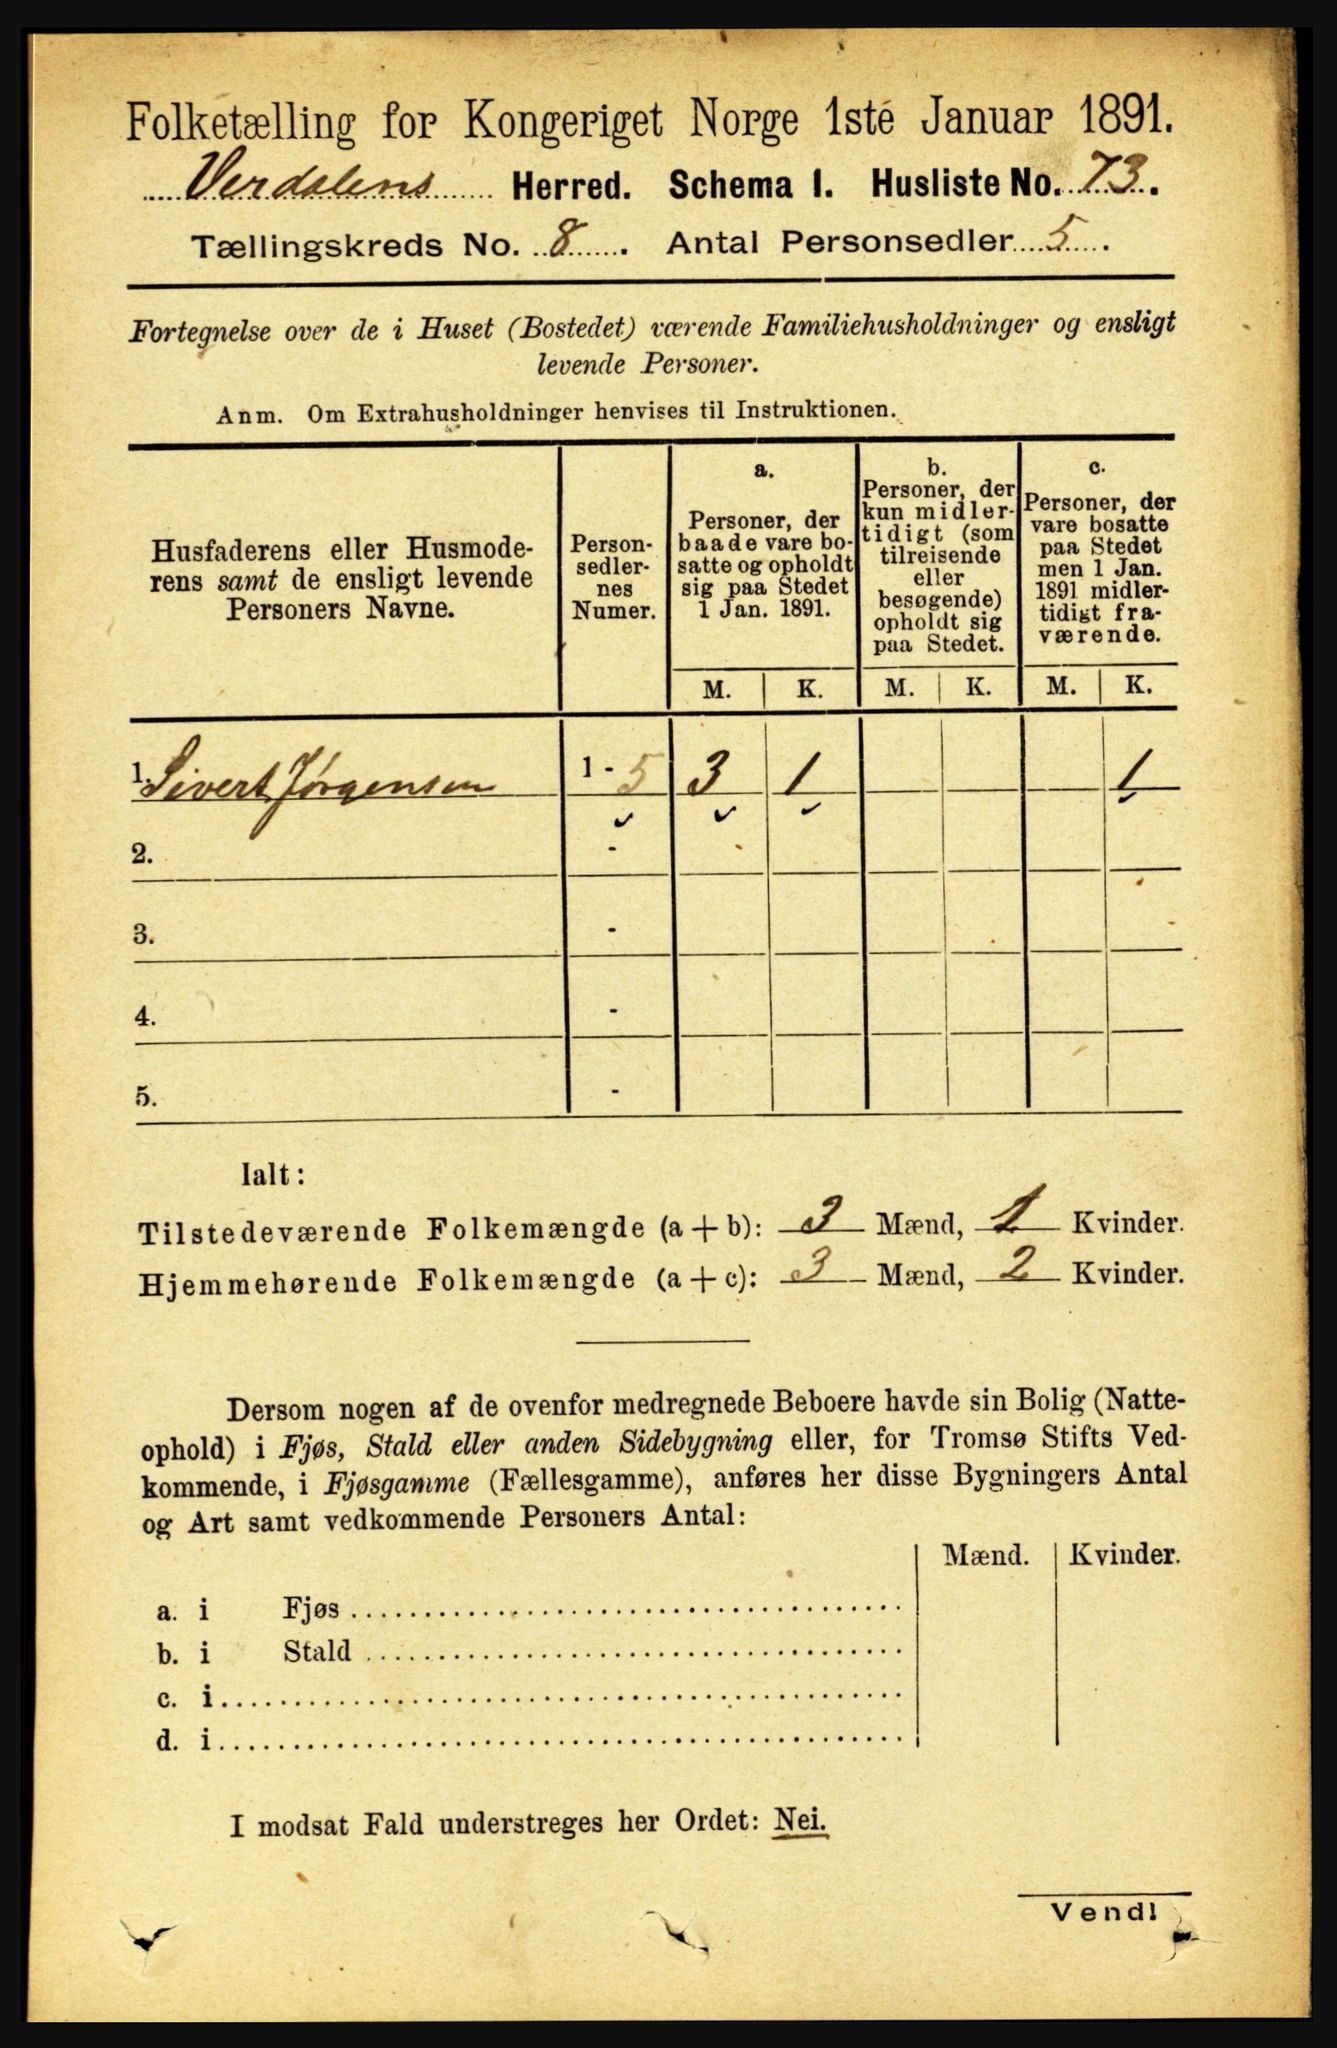 Folketælling for Kongeriget Norge 1ste Januar 1891.
Verdalens Herred. Schema 1. Husliste No. 73.
Tællingskreds No. 8. Antal Personsedler 5.
Fortegnelse over de i Huset (Bostedet) værende Familiehusholdninger og ensligt
levende Personer.
Anm. Om Extrahusholdninger henvises til Instruktionen.
Husfaderens eller Husmode-
rens samt de ensligt levende
Personers Navne.
Person-
sedler-
nes
Numer.
a.
Personer, der
baade vare bo-
satte og opholdt
sig paa Stedet
1 Jan. 1891.
b.
Personer, der
kun midler-
tidigt (som
tilreisende
eller
besøgende)
opholdt sig
paa Stedet.
c.
Personer, der
vare bosatte
paa Stedet
men 1 Jan.
1891 midler-
tidigt fra-
værende.
M. K. M. K. M. K.
1. Sivert Jørgensen 1 - 5 3 1 1
2. -
3. -
4. -
5. -
Ialt:
Tilstedeværende Folkemængde (a + b): 3 Mænd, 1 Kvinder.
Hjemmehørende Folkemængde (a + c): 3 Mænd, 2 Kvinder.
Dersom nogen af de ovenfor medregnede Beboere havde sin Bolig (Natte-
ophold) i Fjøs, Stald eller anden Sidebygning eller, for Tromsø Stifts Ved-
kommende, i Fjøsgamme (Fællesgamme), anføres her disse Bygningers Antal
og Art samt vedkommende Personers Antal:
Mænd. Kvinder.
a. i Fjøs
b. i Stald
c. i
d. i
I modsat Fald understreges her Ordet: Nei.
Vend!